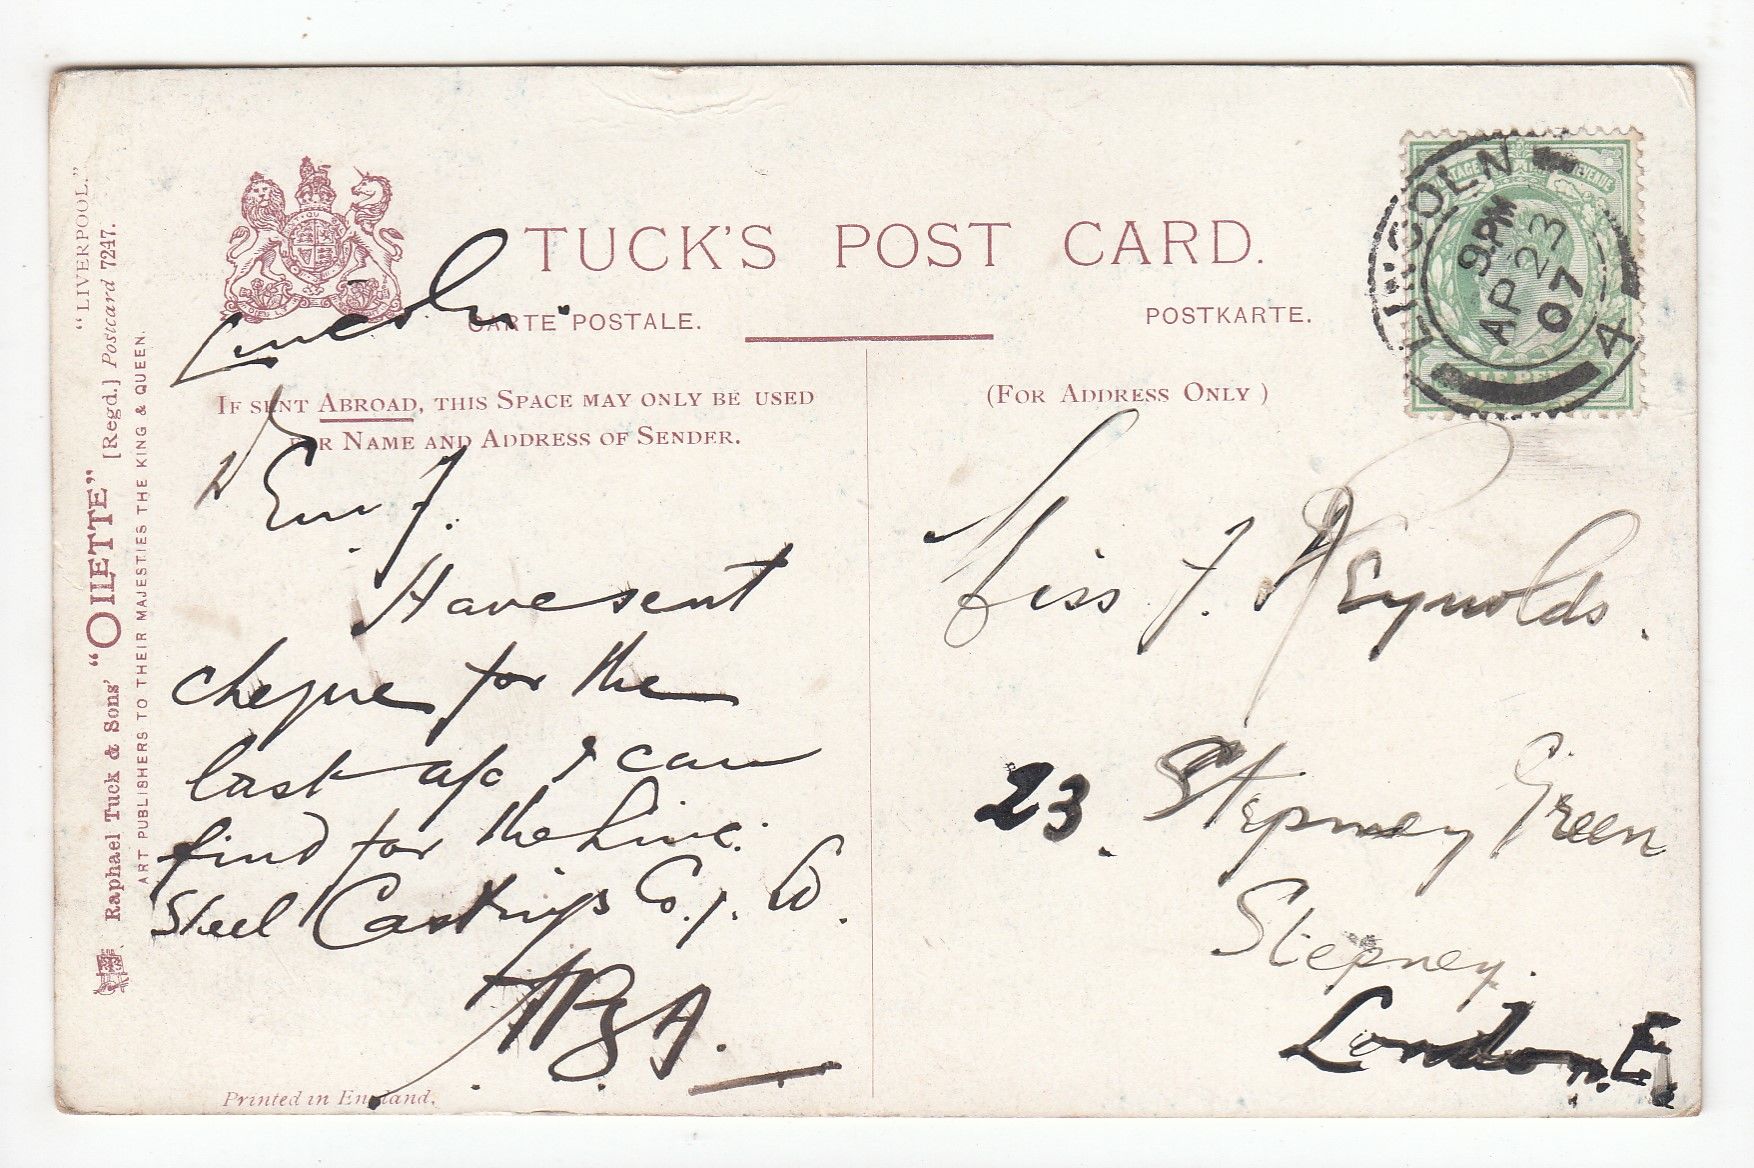 "LIVERPOOL."
Raphael Tuck & Sons' "OILETTE" [Regd.] Postcard 7247.
ART PUBLISHERS TO THEIR MAJESTIES THE KING & QUEEN.
TUCK'S POST CARD.
CARTE POSTALE.
POSTKARTE.
IF SENT ABROAD, THIS SPACE MAY ONLY BE USED
FOR NAME AND ADDRESS OF SENDER.
(FOR ADDRESS ONLY)
POSTAGE REVENUE
LINCOLN
9 PM
AP 23
07
4
HALF PENNY
Lincoln.
D Em J.
Have sent
cheque for the
last a/c I can
find for the Linc.
Steel Castings Co., Ld.
Miss J. Reynolds.
23. Stepney Green
Stepney.
London. E.
Printed in England.